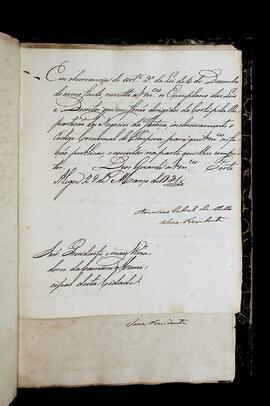 Em observancia do Artº 3º da Lei de 4 de Dezembro
do anno findo, remetto a Vmces os Exemplares das Leis
e Decretos que me forão dirigidos da Corte pela Re
partição dos Negocios da Justiça, inclusivamente o
Codigo Criminal do Imperio para que Vmces o fa
ção publicar, e executar na parte que lhes compe
te. Deos Guarde a Vmces Porto
Alegre 29 de Março de 1831
Americo Cabral de Mello
Vice Prezidente
Snrs. Prezidente e mais Verea
dores da Camara Muni
cipal desta Cidade
Vice Prezidente